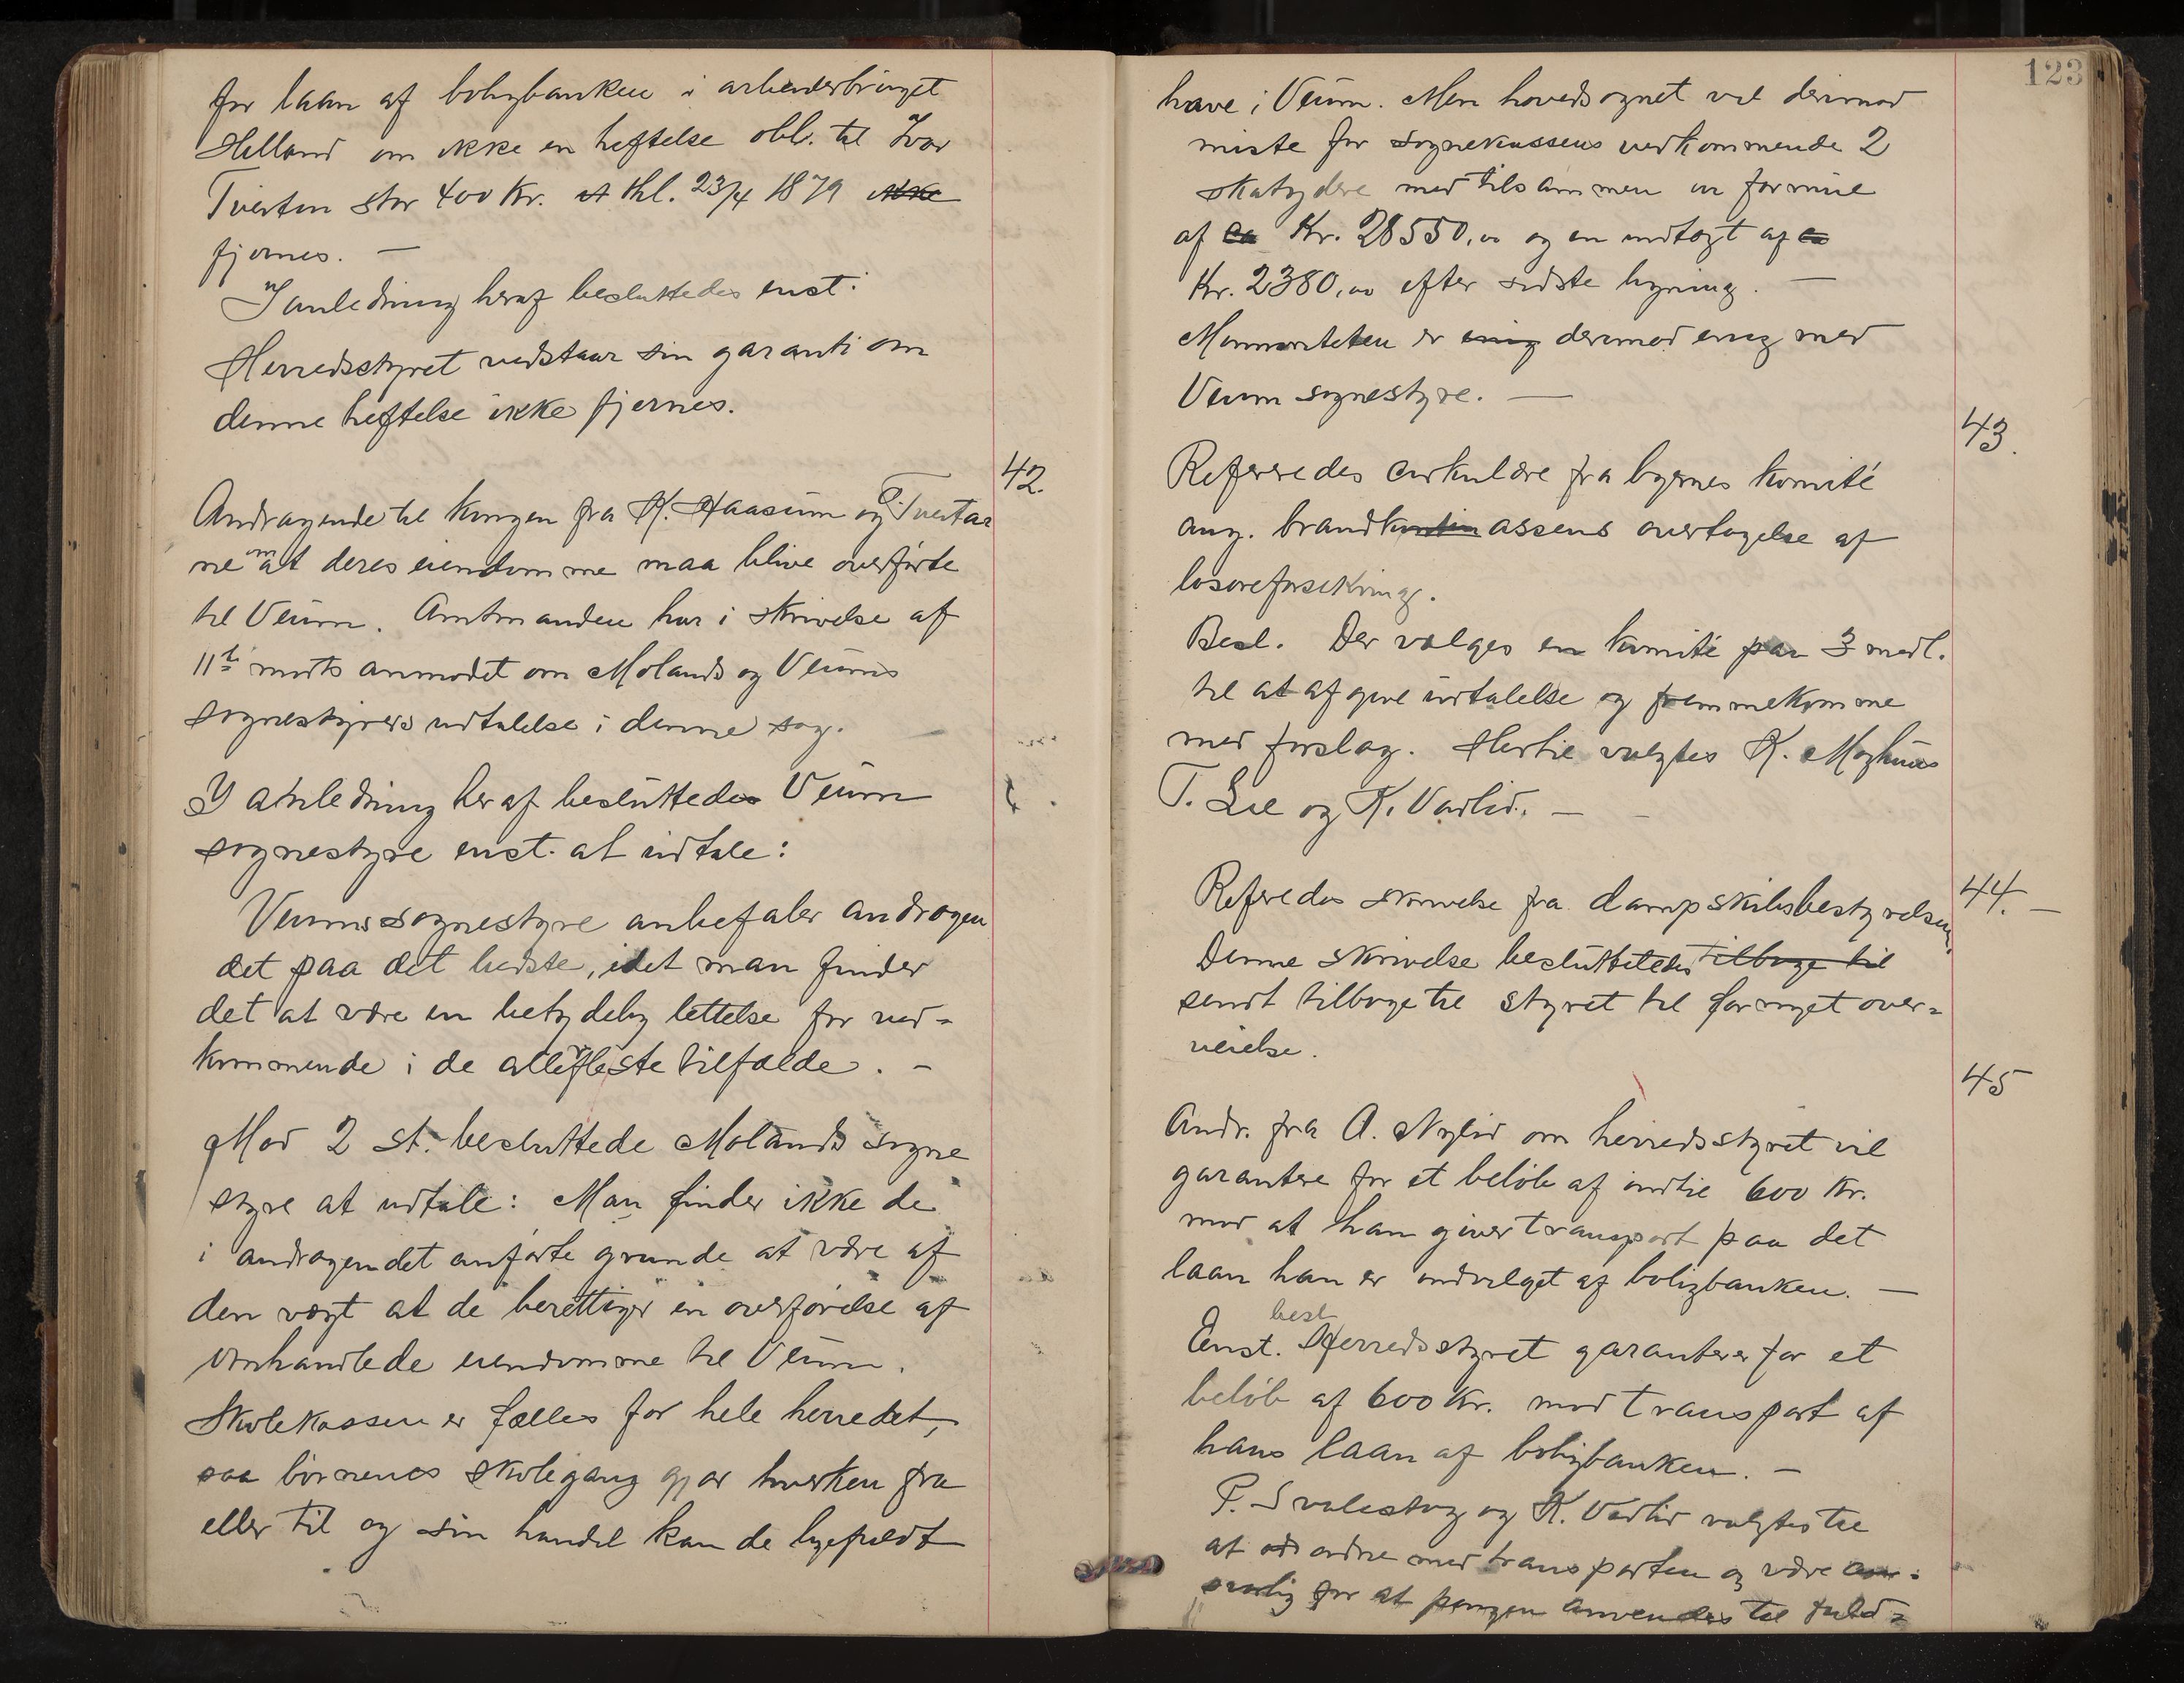 for laan af boligbanken i arbeiderbruget
Helland om ikke en heftelse obl. til Ivar
Tveiten stor 400 Kr. thl. 23/4 1879 ikke
fjernes. —
I anledning heraf besluttedes enst:
Herredsstyret vedstaar sin garanti om
denne heftelse ikke fjernes.
42.
Andragende til kongen fra K. Haasum og
ne om at deres eiendomme maa blive overførte
til Veum. Amtmanden har i skrivelse af
11te marts anmodet om Molands og Veums
sognestyrers udtalelse i denne sag.
I anledning heraf besluttedes Veum
sognestyre enst. at udtale:
Veums sognestyre anbefaler andragen
det paa det bedste, idet man finder
det at være en betydelig lettelse for ved-
kommende i de allerfleste tilfælde. —
Mod 2 st. besluttede Molands sogne
styre at udtale: Man finder ikke de
i andragendet anførte grunde at være af
den vægt at de berettiger en overførelse af
omhandlede eiendomme til Veum.
Skolekassen er fælles for hele herredet,
saa børnenes skolegang gjør hverken fra
eller til og sin handel kan de ligefuldt
123
have i Veum. Men hovedsognet vil derimod
miste for sognekassens vedkommende 2
skatydere med tilsammen en formue
af ca Kr. 28550,00 og en indtægt af ca
Kr. 2380,00 efter sidste ligning. —
Minoriteten er enig derimod enig med
Veum sognestyre. —
43.
Refereredes cirkulære fra byernes komité
ang. brandkassens overtagelse af
løsøreforsikring.
Besl. Der vælges en komité paa 3 medl.
til at afgive udtalelse og fremmekomme
med forslag. Hertil valgtes K. Moghus
T. Lie og K. Vadlid. —
44. —
Referedes skrivelse fra dampskibsbestyrelsen.
Denne skrivelse besluttetedes tilbage til
sendt tilbage til styret til fornyet over-
veielse.
45
Andr. fra A. Nylid om herredsstyret vil
garantere for et beløb af indtil 600 Kr.
mod at han giver transport paa det
laan han er indvilget af boligbanken. —
besl
Enst. Herredsstyret garanterer for et
beløb af 600 Kr. mod transport af
hans laan af boligbanken. —
P. Svalestog og K. Vadlid valgtes til
at ordne med transporten og være an-
svarlig for at pengen anvendes til fuld-